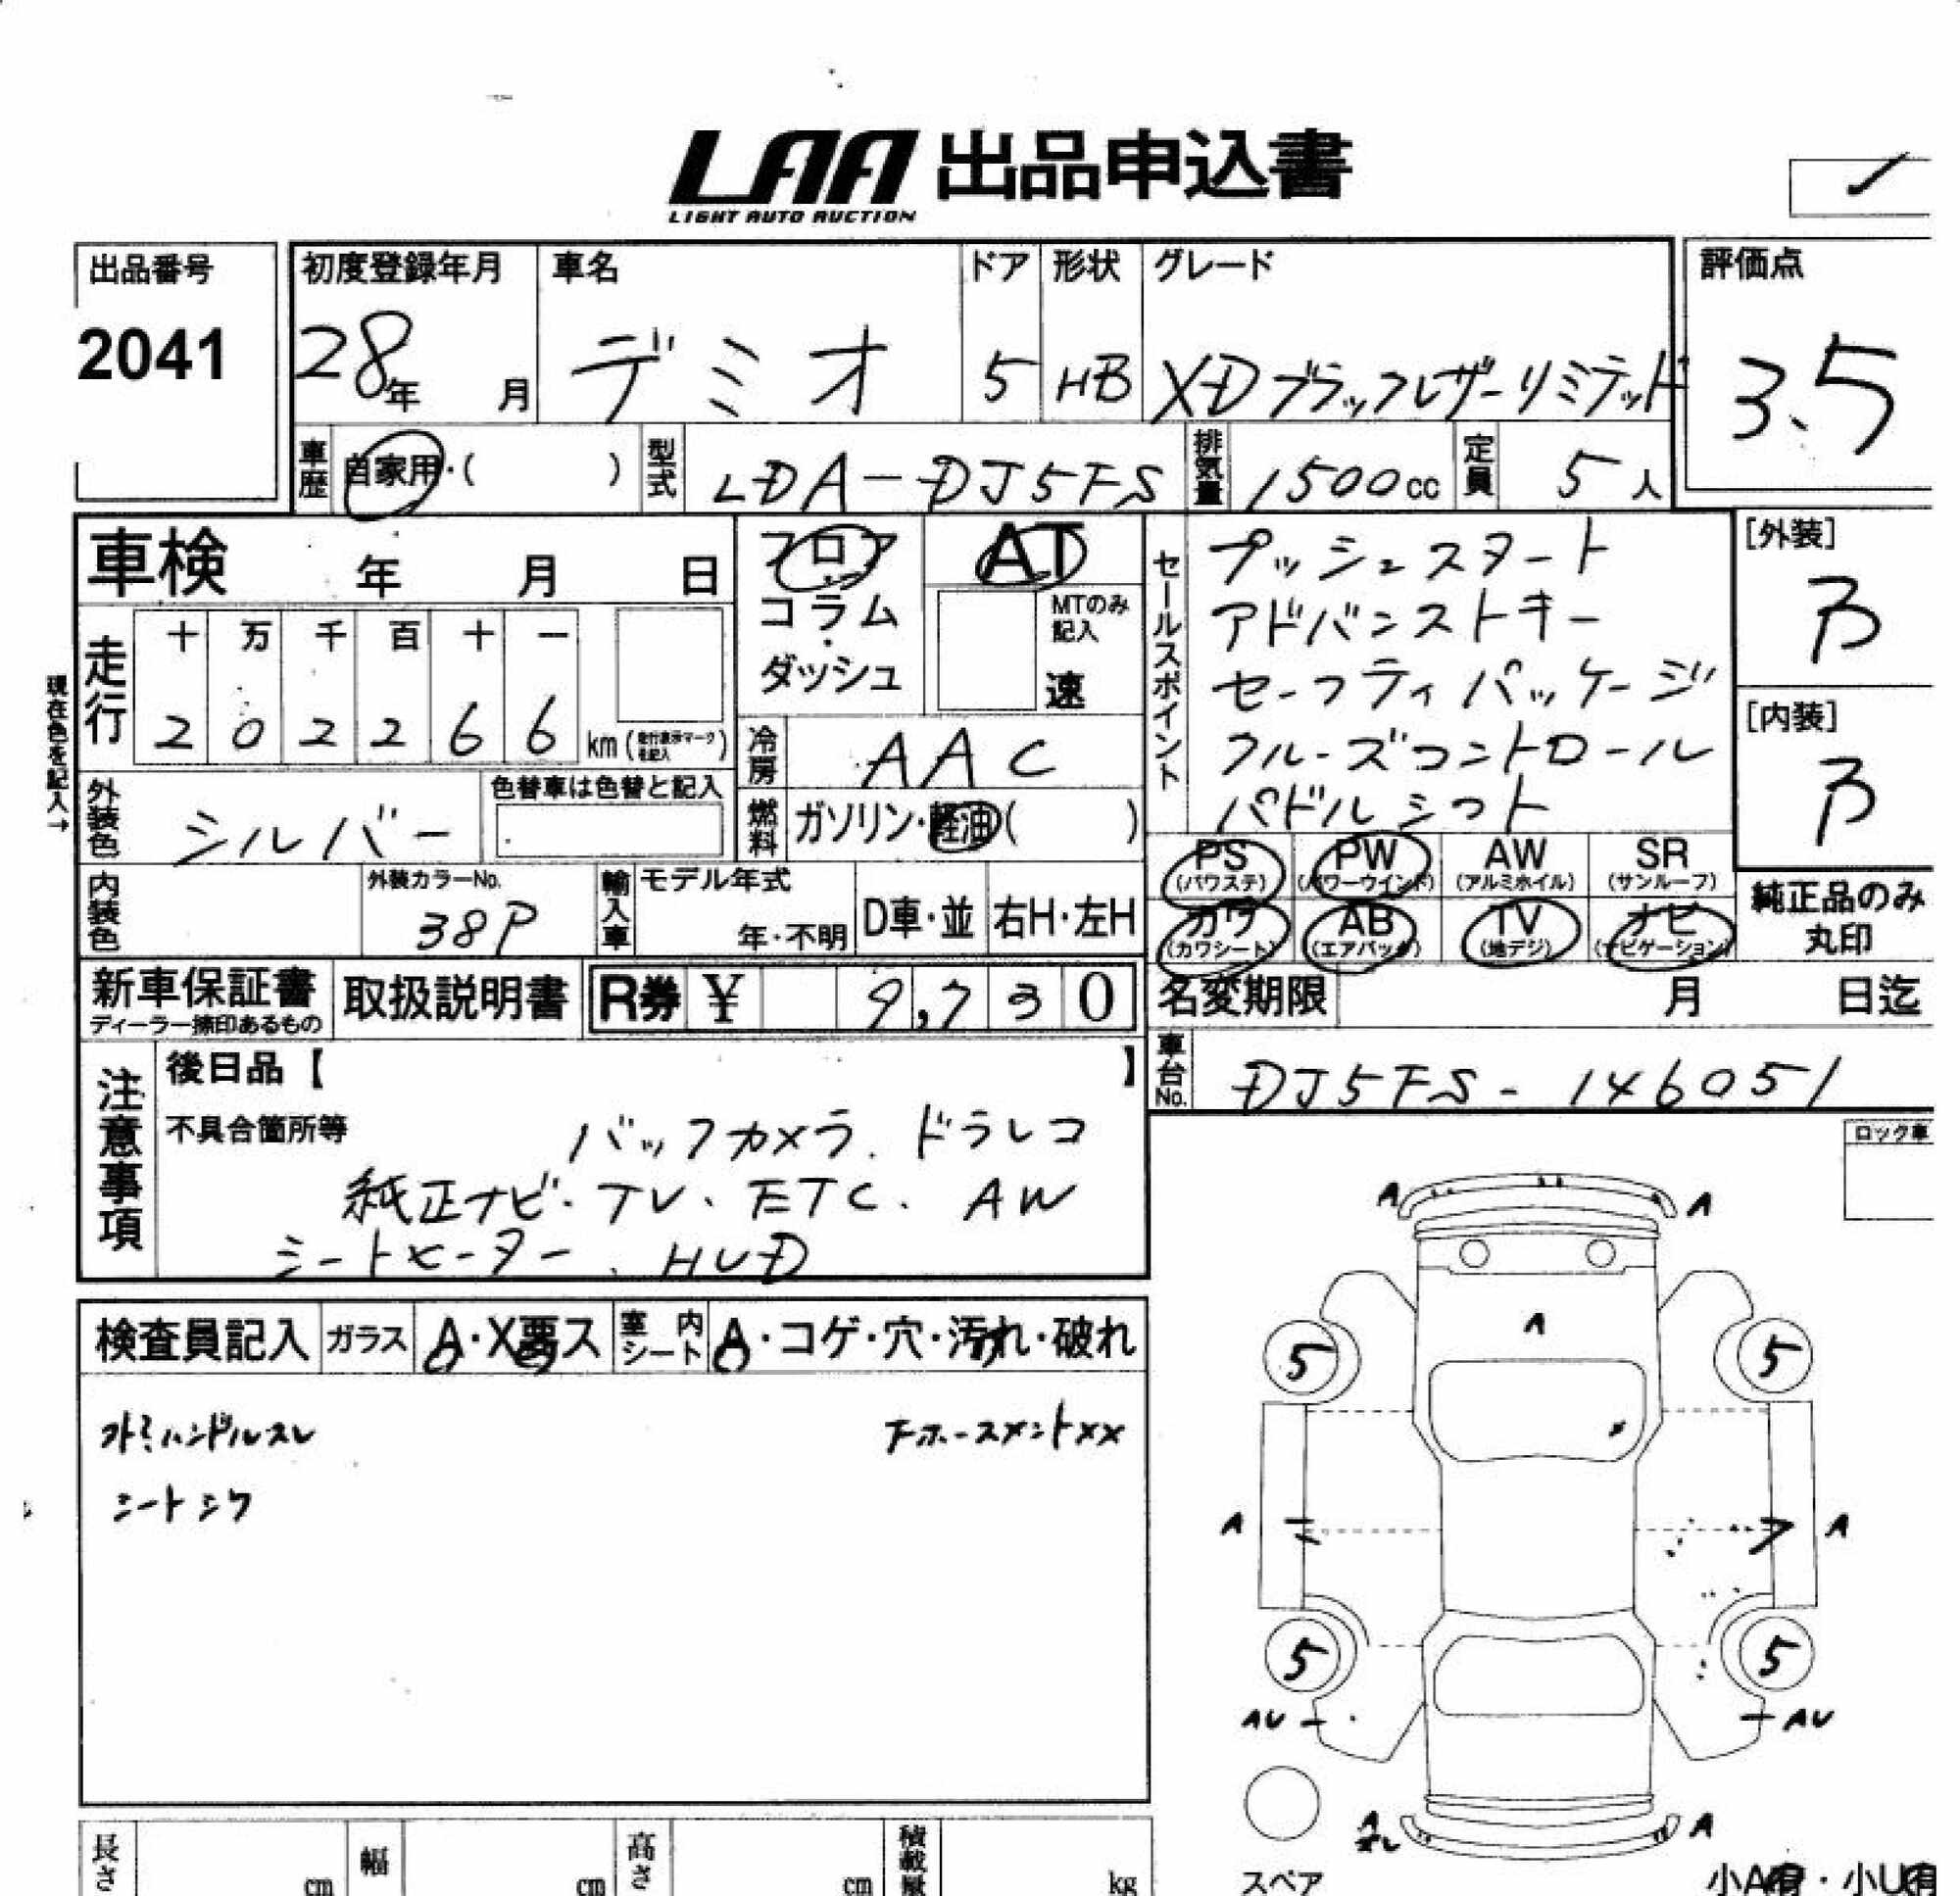 LAA 出品申込書
LIGHT AUTO AUCTION
出品番号
2041
初度登録年月
28年 月
車名
デミオ
ドア
5
形状
HB
グレード
XDブラックレザーリミテッド
評価点
3.5
車歴
自家用・( )
型式
LDA-DJ5FS
排気量
1500cc
定員
5人
車検 年 月 日
フロア
コラム
・
ダッシュ
AT
MTのみ
記入
速
セールスポイント
プッシュスタート
アドバンストキー
セーフティパッケージ
クルーズコントロール
パドルシフト
[外装]
B
[内装]
B
現在色を記入→
走行
十 万 千 百 十 一
2 0 2 2 6 6 km (走行表示マークを記入)
冷房
AAC
外装色
シルバー
色替車は色替と記入
燃料
ガソリン・軽油( )
PS (パワステ)
PW (パワーウインド)
AW (アルミホイル)
SR (サンルーフ)
カワ (カワシート)
AB (エアバック)
TV (地デジ)
ナビ (ナビゲーション)
純正品のみ
丸印
内装色
外装カラーNo.
38P
輸入車
モデル年式
年・不明
D車・並
右H・左H
新車保証書
ディーラー捺印あるもの
取扱説明書
R券 ¥ 9,730
名変期限 月 日迄
車台No.
DJ5FS-146051
注意事項
後日品【 】
不具合箇所等
バックカメラ、ドラレコ
純正ナビ・TV、ETC、AW
シートヒーター、HUD
ロック車
検査員記入
ガラス
A・X悪ス
室内
シート
A・コゲ・穴・汚れ・破れ
ハンドルスレ
シートシワ
ホースメントXX
A A
A
5 5
A A
5 5
AU AU
A A
スペア
小A有・小U有
長さ cm
幅 cm
高さ cm
積載量 kg